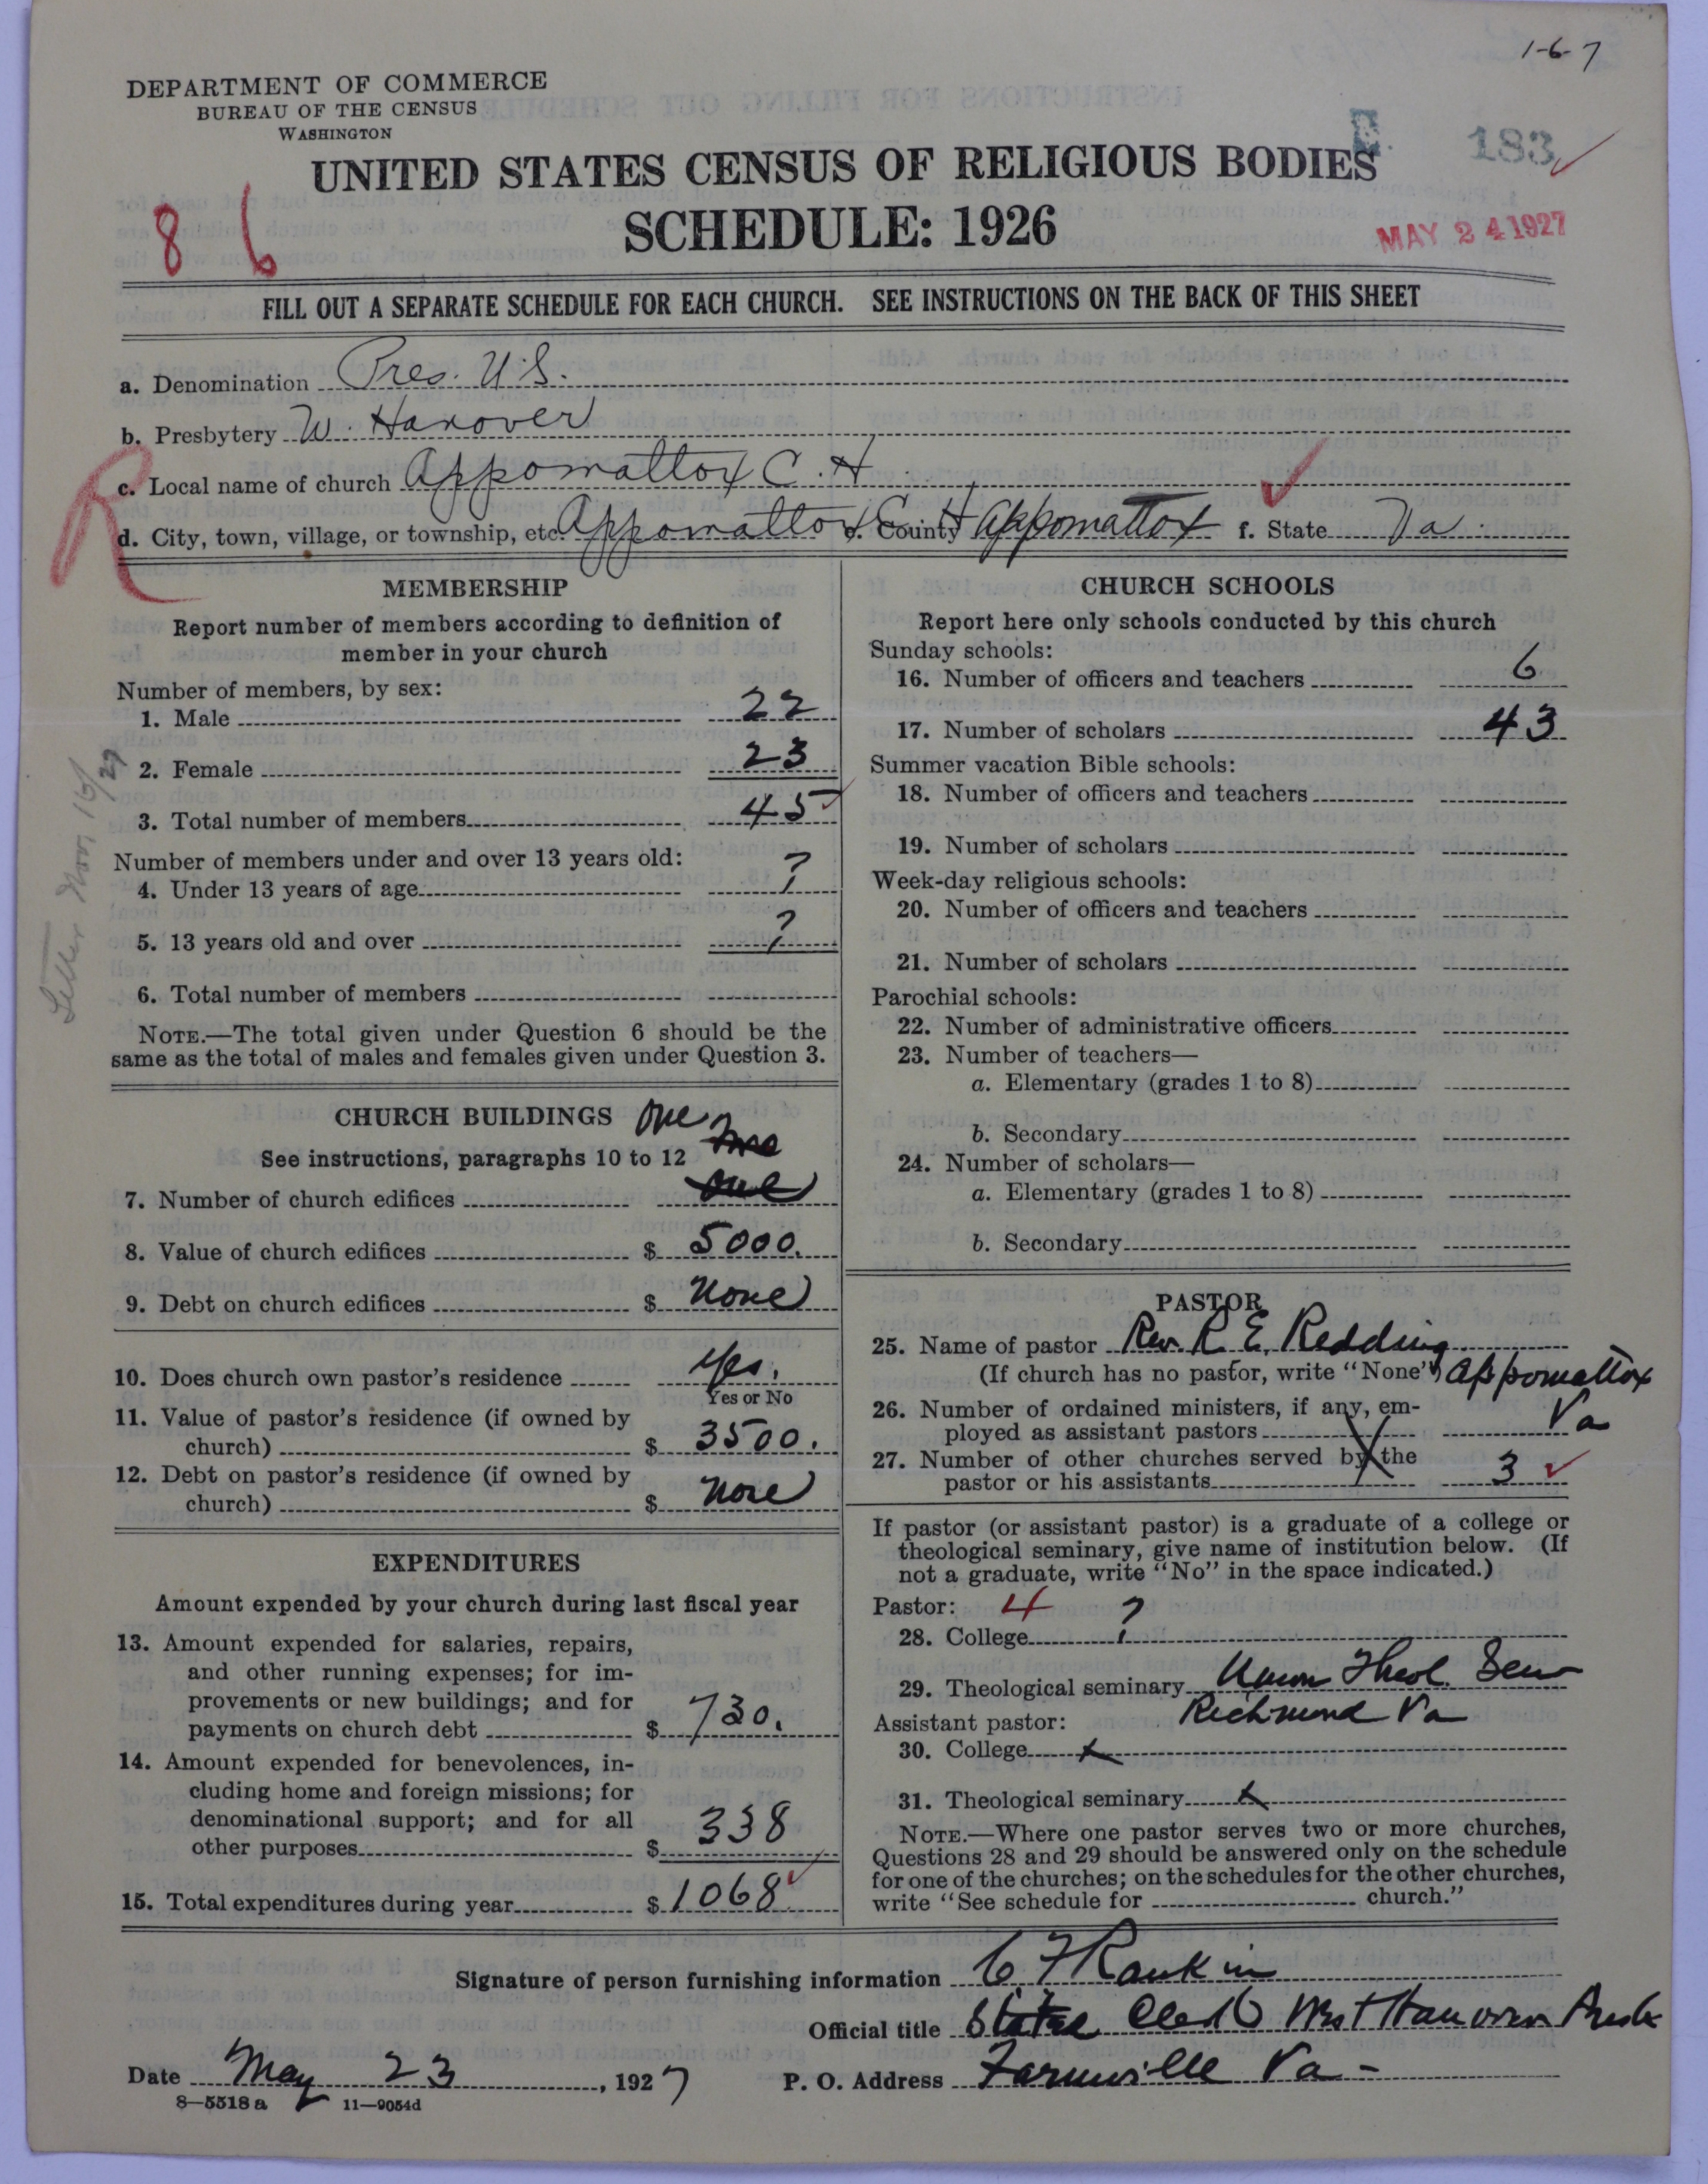 1-6-7
DEPARTMENT OF COMMERCE
BUREAU OF THE CENSUS
WASHINGTON
183
UNITED STATES CENSUS OF RELIGIOUS BODIES
SCHEDULE: 1926
86
MAY 24 1927
FILL OUT A SEPARATE SCHEDULE FOR EACH CHURCH. SEE INSTRUCTIONS ON THE BACK OF THIS SHEET
a. Denomination Pres. U.S.
b. Presbytery W. Hanover
R
c. Local name of church Appomattox C. H.
d. City, town, village, or township, etc. Appomattox C. H. e. County Appomattox f. State Va.
MEMBERSHIP
Report number of members according to definition of
member in your church
Number of members, by sex:
1. Male 22
2. Female 23
3. Total number of members 45
Number of members under and over 13 years old:
4. Under 13 years of age ?
5. 13 years old and over ?
6. Total number of members
NOTE.—The total given under Question 6 should be the
same as the total of males and females given under Question 3.
Letter Nov 16/27
CHURCH BUILDINGS One
See instructions, paragraphs 10 to 12
7. Number of church edifices one
8. Value of church edifices $ 5000.
9. Debt on church edifices $ None
10. Does church own pastor's residence Yes.
Yes or No
11. Value of pastor's residence (if owned by
church) $ 3500.
12. Debt on pastor's residence (if owned by
church) $ None
EXPENDITURES
Amount expended by your church during last fiscal year
13. Amount expended for salaries, repairs,
and other running expenses; for im-
provements or new buildings; and for
payments on church debt $ 730.
14. Amount expended for benevolences, in-
cluding home and foreign missions; for
denominational support; and for all
other purposes $ 338
15. Total expenditures during year $ 1068
CHURCH SCHOOLS
Report here only schools conducted by this church
Sunday schools:
16. Number of officers and teachers 6
17. Number of scholars 43
Summer vacation Bible schools:
18. Number of officers and teachers
19. Number of scholars
Week-day religious schools:
20. Number of officers and teachers
21. Number of scholars
Parochial schools:
22. Number of administrative officers
23. Number of teachers—
a. Elementary (grades 1 to 8)
b. Secondary
24. Number of scholars—
a. Elementary (grades 1 to 8)
b. Secondary
PASTOR
25. Name of pastor Rev. R. E. Redding
(If church has no pastor, write "None") Appomattox
Va
26. Number of ordained ministers, if any, em-
ployed as assistant pastors
27. Number of other churches served by the
pastor or his assistants 3
If pastor (or assistant pastor) is a graduate of a college or
theological seminary, give name of institution below. (If
not a graduate, write "No" in the space indicated.)
Pastor: 4
28. College ?
29. Theological seminary Union Theol. Sem
Richmond Va
Assistant pastor:
30. College x
31. Theological seminary x
NOTE.—Where one pastor serves two or more churches,
Questions 28 and 29 should be answered only on the schedule
for one of the churches; on the schedules for the other churches,
write "See schedule for church."
Signature of person furnishing information C F Rankin
Official title Stated Clerk West Hanover Presb
Date May 23, 1927 P. O. Address Farmville Va -
8—5518 a 11—9054d